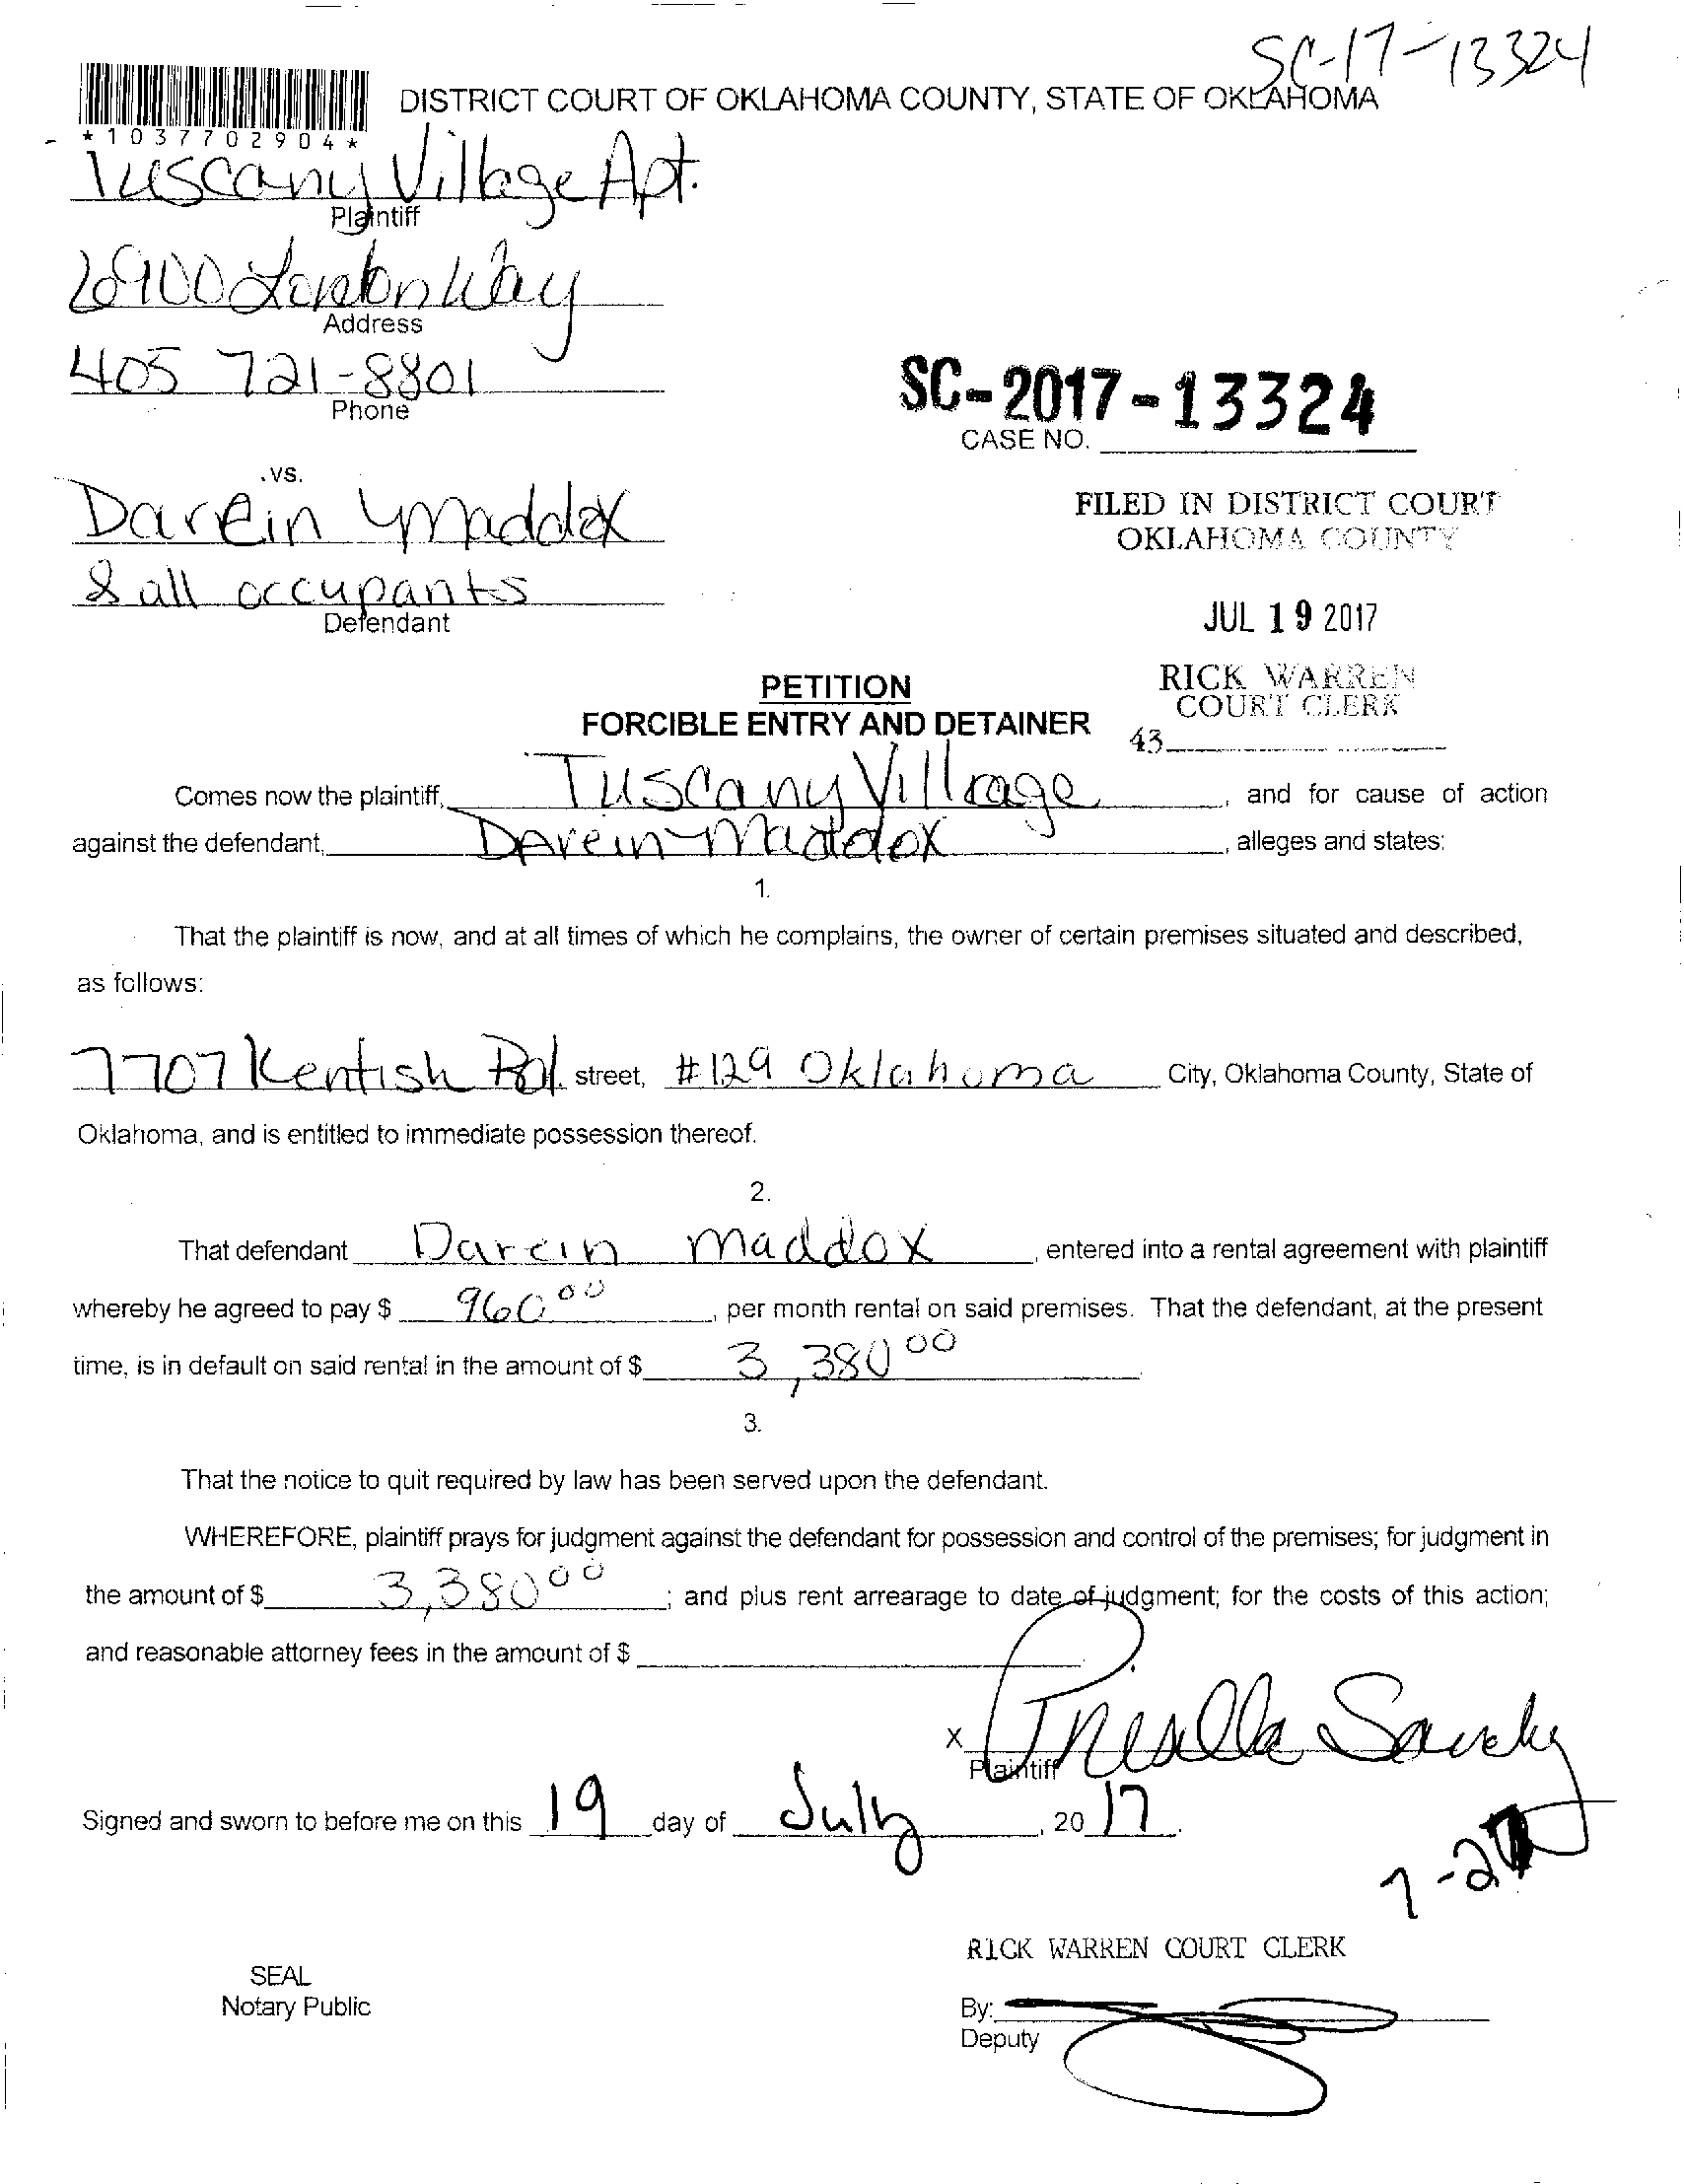 SC-17-13324
DISTRICT COURT OF OKLAHOMA COUNTY, STATE OF OKLAHOMA
*1037702904*
Tuscany Village Apt.
Plaintiff
6900 London Way
Address
405 721-8801
Phone
SC-2017-13324
CASE NO.
.vs.
Darein Maddox
FILED IN DISTRICT COURT
OKLAHOMA COUNTY
& all occupants
Defendant
JUL 19 2017
RICK WARREN
COURT CLERK
43
PETITION
FORCIBLE ENTRY AND DETAINER
Comes now the plaintiff, Tuscany Village, and for cause of action
against the defendant, Darein Maddox, alleges and states:
1.
That the plaintiff is now, and at all times of which he complains, the owner of certain premises situated and described,
as follows:
7707 Kentish Rd. street, #129 Oklahoma City, Oklahoma County, State of
Oklahoma, and is entitled to immediate possession thereof.
2.
That defendant Darein Maddox, entered into a rental agreement with plaintiff
whereby he agreed to pay $ 960.00, per month rental on said premises. That the defendant, at the present
time, is in default on said rental in the amount of $ 3,380 00
3.
That the notice to quit required by law has been served upon the defendant.
WHEREFORE, plaintiff prays for judgment against the defendant for possession and control of the premises; for judgment in
the amount of $ 3,380 00; and plus rent arrearage to date of judgment; for the costs of this action;
and reasonable attorney fees in the amount of $
X
Plaintiff
Signed and sworn to before me on this 19 day of July, 20 17.
RICK WARREN COURT CLERK
SEAL
Notary Public
By:
Deputy